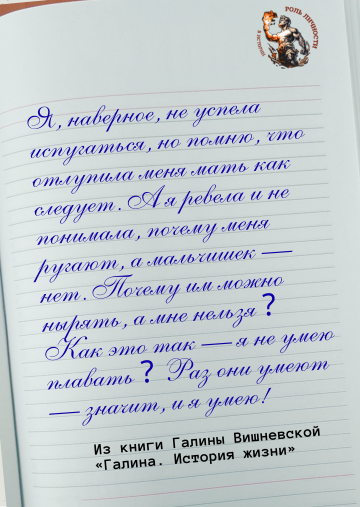 РОЛЬ ЛИЧНОСТИ
Я, наверное, не успела
испугаться, но помню, что
отлупила меня мать как
следует. А я ревела и не
понимала, почему меня
ругают, а мальчишек —
нет. Почему им можно
нырять, а мне нельзя?
Как это так — я не умею
плавать? Раз они умеют
— значит, и я умею!
Из книги Галины Вишневской
«Галина. История жизни»